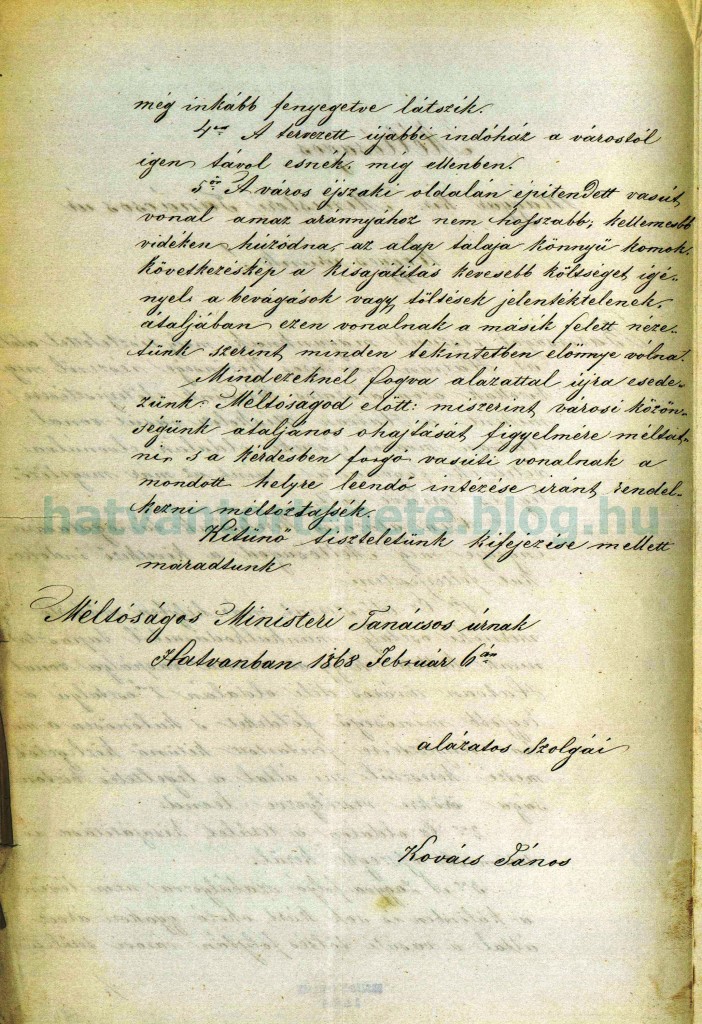 még inkább fenyegetve látszik.
4er A tervezett újabbi indóház a várostól
igen távol esnék, mig ellenben.
5ör A város éjszaki oldalán épitendett vasút
vonal amaz arannyához nem hoſszabb, kellemesb
vidéken húzódna, az alap talaja könnyü homok,
következéskép a kisajatitás kevesebb költséget igé-
nyel, a bevágások vagy töltések jelentéktelenek,
átaljában ezen vonalnak a másik felett néze-
tünk szerint minden tekintetben elönnye vólna.
Mindezeknél fogva alázattal újra esede-
zünk Méltóságod elött: miszerint városi közön-
ségünk átaljános ohajtását figyelmére méltat-
ni, s a kérdésben forgó vasúti vonalnak a
mondott helyre leendö intézése iránt rendel-
kezni méltóztaſsék.
Kitünö tiszteletünk kifejezése mellett
máradtunk
Méltóságos Ministeri Tanácsos úrnak
Hatvanban 1868 Február 6án
alázatos Szolgái
Kovács János
hatvantortenete.blog.hu